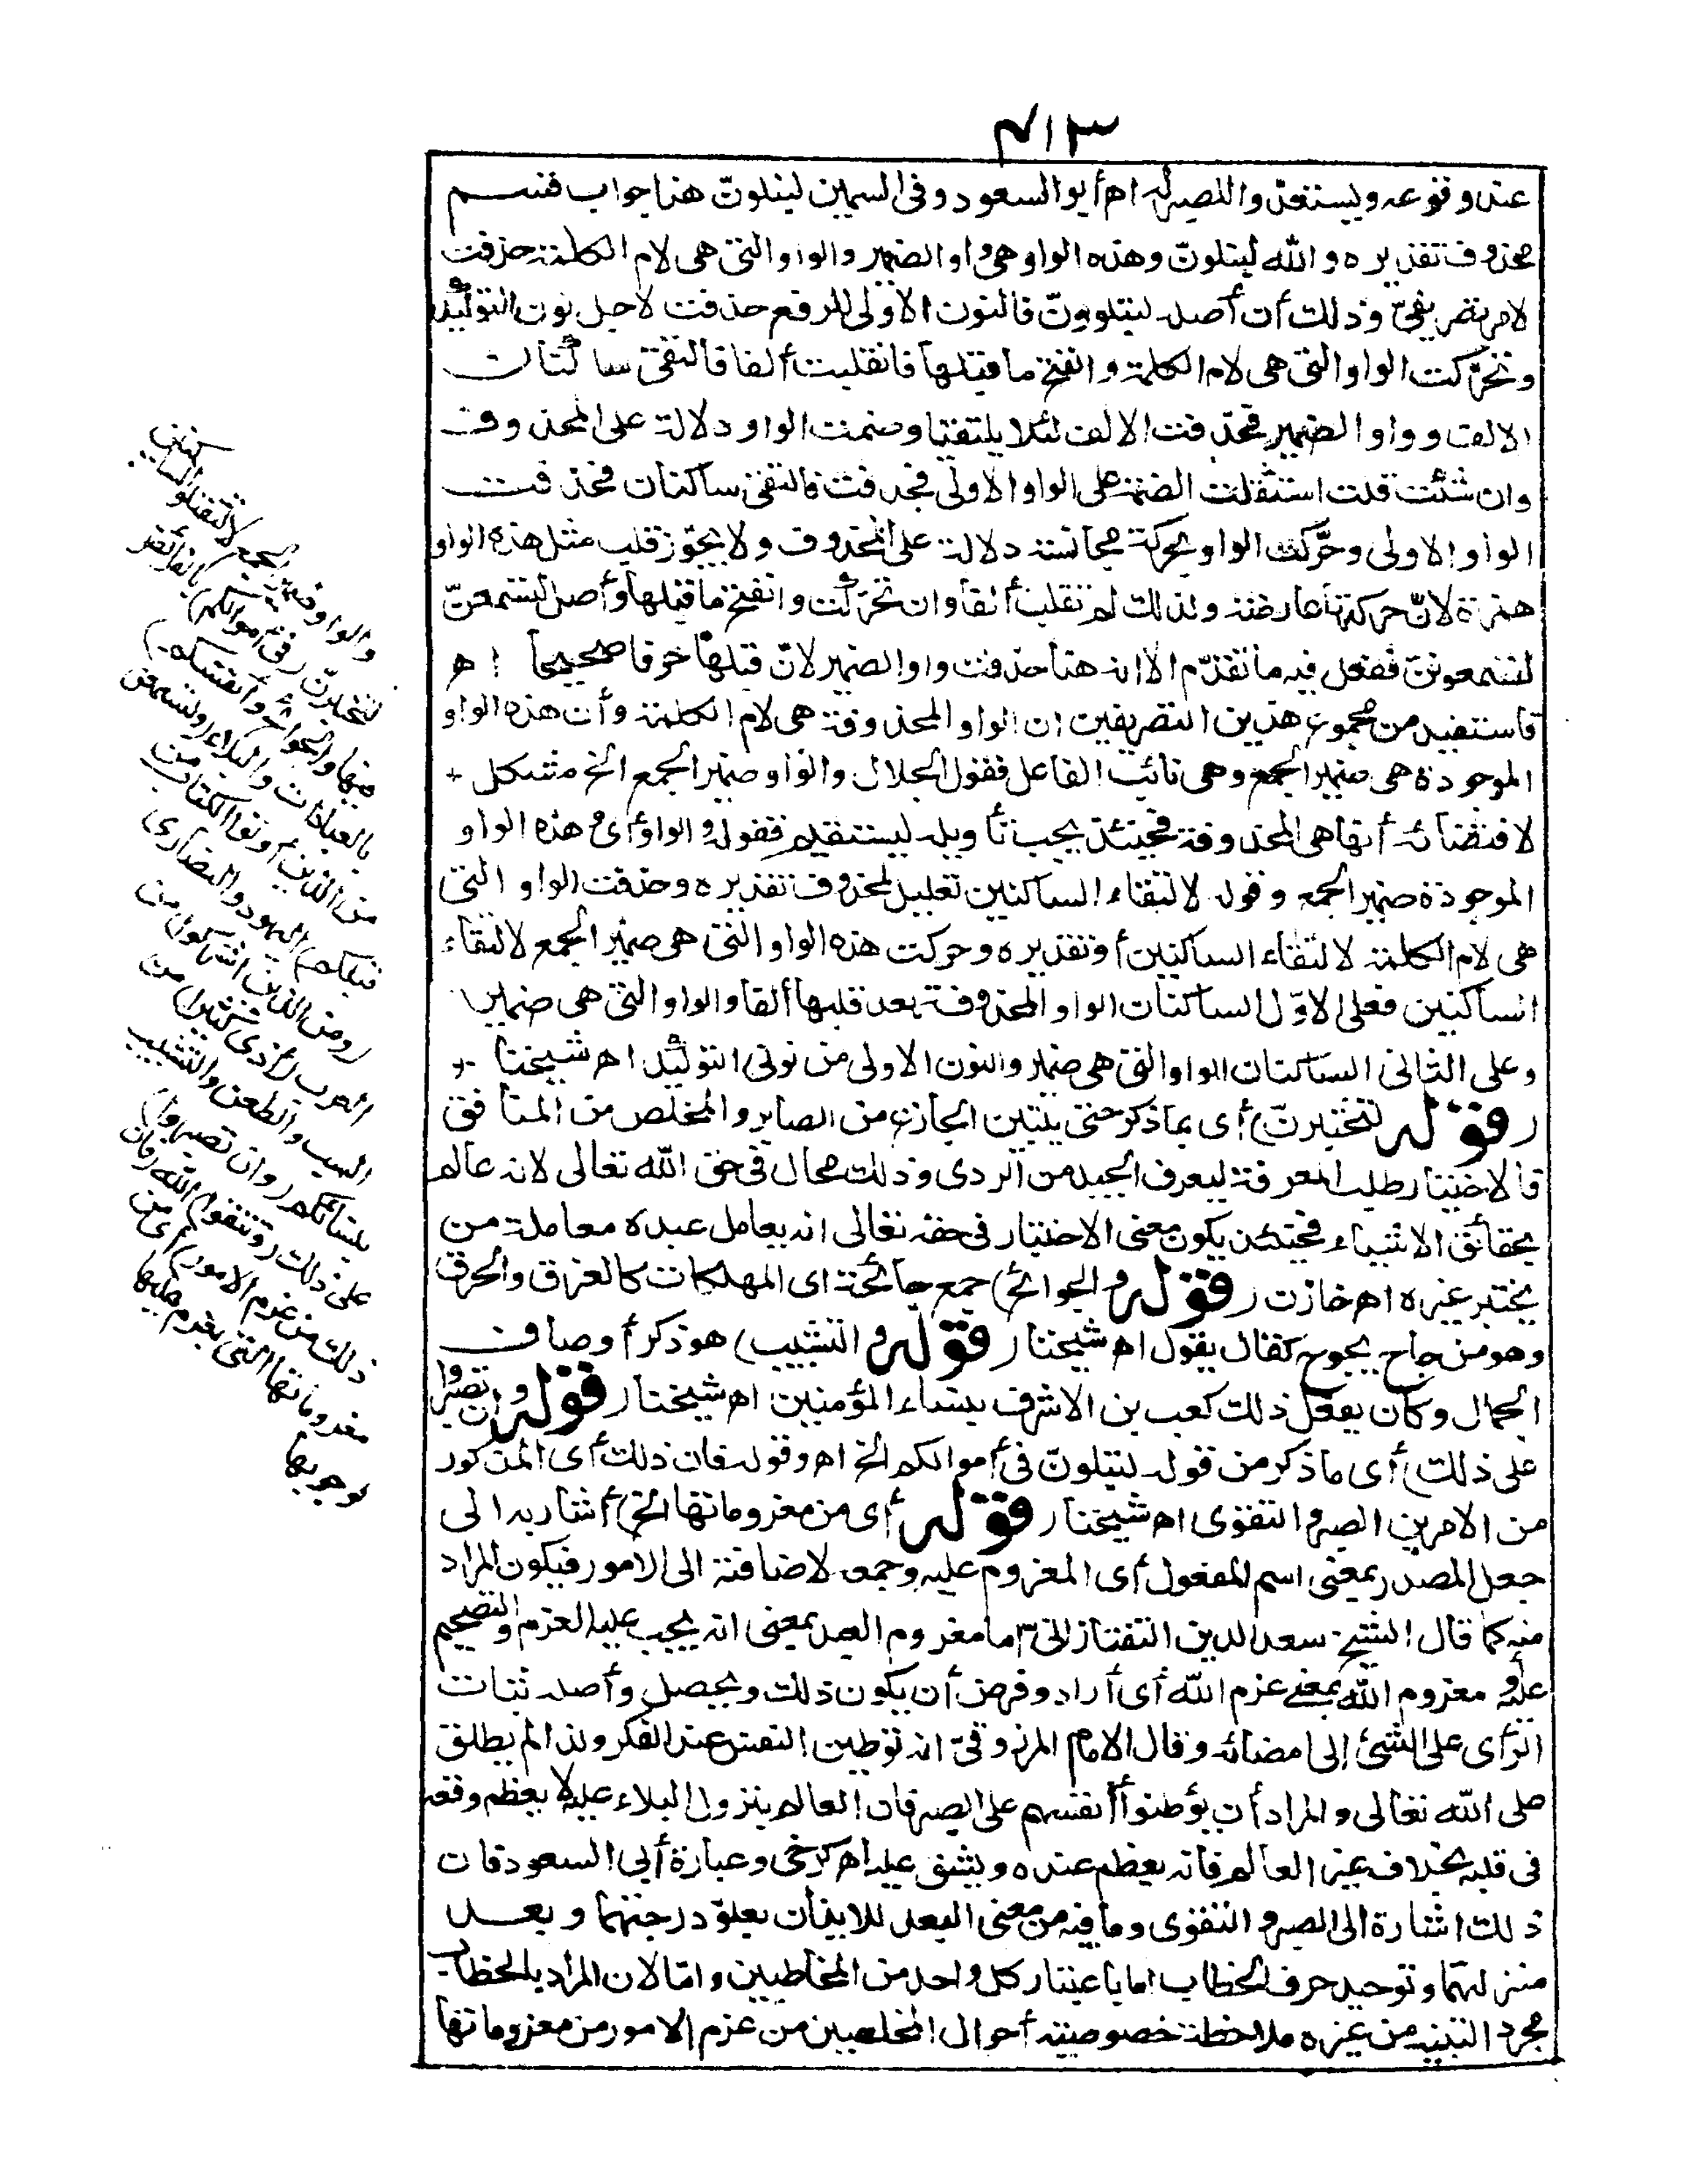 ٤١٣
عند وقوعه ويستعدّوا للصبر له اه أبو السعود وفى السمين لتبلونّ هذا جواب قسم
محذوف تقديره والله لتبلونّ وهذه الواو هى واو الضمير والواو التى هى لام الكلمة حذفت
لامر تصريفىّ وذلك أن أصله لتبلووننّ فالنون الاولى للرفع حذفت لاجل نون التوكيد
وتحرّكت الواو التى هى لام الكلمة وانفتح ما قبلها فانقلبت ألفا فالتقى ساكنان
الالف وواو الضمير فحذفت الالف لئلا يلتقيا وضمت الواو دلالة على المحذوف
وان شئت قلت استثقلت الضمة على الواو الاولى فحذفت فالتقى ساكنان فحذفت
الواو الاولى وحرّكت الواو بحركة مجانسة دلالة على المحذوف ولا يجوز قلب مثل هذه الواو
همزة لانّ حركتها عارضة ولذلك لم تقلب ألفا وان تحرّكت وانفتح ما قبلها وأصل لتسمعنّ
لتسمعوننّ ففعل فيه ما تقدّم الا انه هنا حذفت واو الضمير لانّ قبلها حرفا صحيحا اه
فاستفيد من مجموع هذين التصريفين ان الواو المحذوفة هى لام الكلمة وأن هذه الواو
الموجودة هى ضمير الجمع وهى نائب الفاعل فقول الجلال والواو ضمير الجمع الخ مشكل
لاقتضائه أنها هى المحذوفة فحينئذ يجب تأويله ليستقيم فقوله والواو أى وهذه الواو
الموجودة ضمير الجمع وقوله لالتقاء الساكنين تعليل لمحذوف تقديره وحذفت الواو التى
هى لام الكلمة لالتقاء الساكنين أو تقديره وحركت هذه الواو التى هى ضمير الجمع لالتقاء
الساكنين فعلى الاوّل الساكنان الواو المحذوفة بعد قلبها ألفا والواو التى هى ضمير
وعلى الثانى الساكنان الواو التى هى ضمير والنون الاولى من نونى التوكيد اه شيخنا
(قوله لتختبرنّ) أى بما ذكر حتى يتبين الجازع من الصابر والمخلص من المنافق
فالاختبار طلب المعرفة ليعرف الجيد من الردى وذلك محال فى حق الله تعالى لانه عالم
بحقائق الاشياء فحينئذ يكون معنى الاختبار فى حقه تعالى انه يعامل عبده معاملة من
يختبر غيره اه خازن (قوله والجوائح) جمع جائحة اى المهلكات كالغرق والحرق
وهو من جاح يجوح كقال يقول اه شيخنا (قوله والتشبيب) هو ذكر أوصاف
الجمال وكان يفعل ذلك كعب بن الاشرف بنساء المؤمنين اه شيخنا (قوله وان تصبروا
على ذلك) أى ما ذكر من قوله لتبلونّ فى أموالكم الخ اه وقوله فان ذلك أى المذكور
من الامرين الصبر والتقوى اه شيخنا (قوله أى من معزوماتها الخ) أشار به الى
جعل المصدر بمعنى اسم المفعول أى المعزوم عليه وجمعه لاضافته الى الامور فيكون المراد
منه كما قال الشيخ سعد الدين التفتازانى اما معزوم العبد بمعنى انه يجب عليه العزم والتصميم
عليه أو معزوم الله بمعنى عزم الله أى أراد وفرض أن يكون ذلك ويحصل وأصله ثبات
الرأى على الشئ إلى امضائه وقال الامام المرزوقىّ انه توطين النفس عند الفكر ولذا لم يطلق
على الله تعالى والمراد أن يوطنوا أنفسهم على الصبر فان العالم بنزول البلاء عليه لا يعظم وقعه
فى قلبه بخلاف غير العالم فانه يعظم عنده ويشق عليه اه كرخى وعبارة أبى السعود فان
ذلك اشارة الى الصبر والتقوى وما فيه من معنى البعد للايذان بعلوّ درجتهما وبعد
منزلتهما وتوحيد حرف الخطاب اما باعتبار كل واحد من المخاطبين واما لان المراد بالخطاب
مجرد التنبيه من غير ملاحظة خصوصية أحوال المخاطبين من عزم الامور من معزوماتها
والواو ضمير الجمع لالتقاء الساكنين
لتختبرنّ (فى أموالكم) بالفرائض
فيها والجوائح (وأنفسكم)
بالعبادات والبلاء (ولتسمعن
من الذين أوتوا الكتاب من
قبلكم) اليهود والنصارى
(ومن الذين اشركوا) من
العرب (أذى كثيرا) من
السب والطعن والتشبيب
بنسائكم (وان تصبروا)
على ذلك (وتتقوا) الله (فان
ذلك من عزم الامور) أى من
معزوماتها التى يعزم عليها
لوجوبها